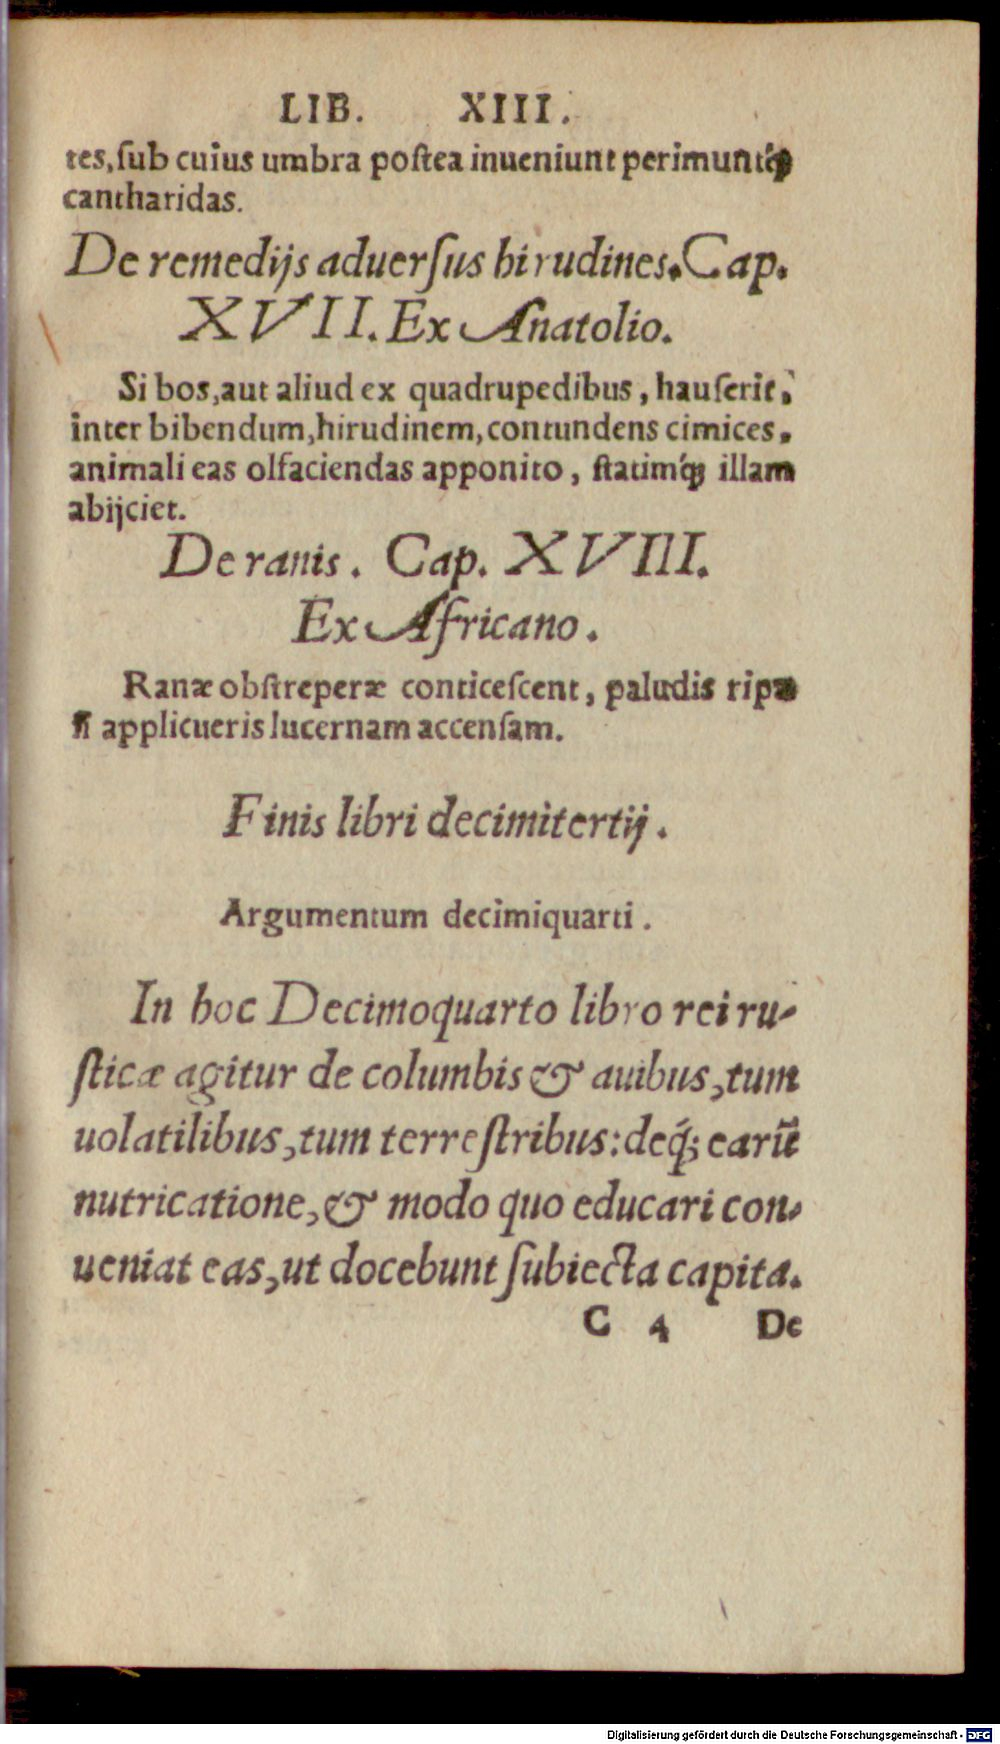 LIB. XIII.
tes, ſub cuius umbra poſtea inueniunt perimuntq́ꝫ
cantharidas.
De remedijs aduerſus hirudines. Cap.
XVII. Ex Anatolio.
Si bos, aut aliud ex quadrupedibus, hauſerit,
inter bibendum, hirudinem, contundens cimices,
animali eas olfaciendas apponito, ſtatimq́ꝫ illam
abijciet.
De ranis. Cap. XVIII.
Ex Africano.
Ranæ obſtreperæ conticeſcent, paludis ripæ
ſi applicueris lucernam accenſam.
Finis libri decimitertij.
Argumentum decimiquarti.
In hoc Decimoquarto libro rei ru-
ſticæ agitur de columbis & auibus, tum
uolatilibus, tum terreſtribus: deq́; earũ
nutricatione, & modo quo educari con-
ueniat eas, ut docebunt ſubiecta capita.
C 4 De
Digitalisierung gefördert durch die Deutsche Forschungsgemeinschaft - DFG